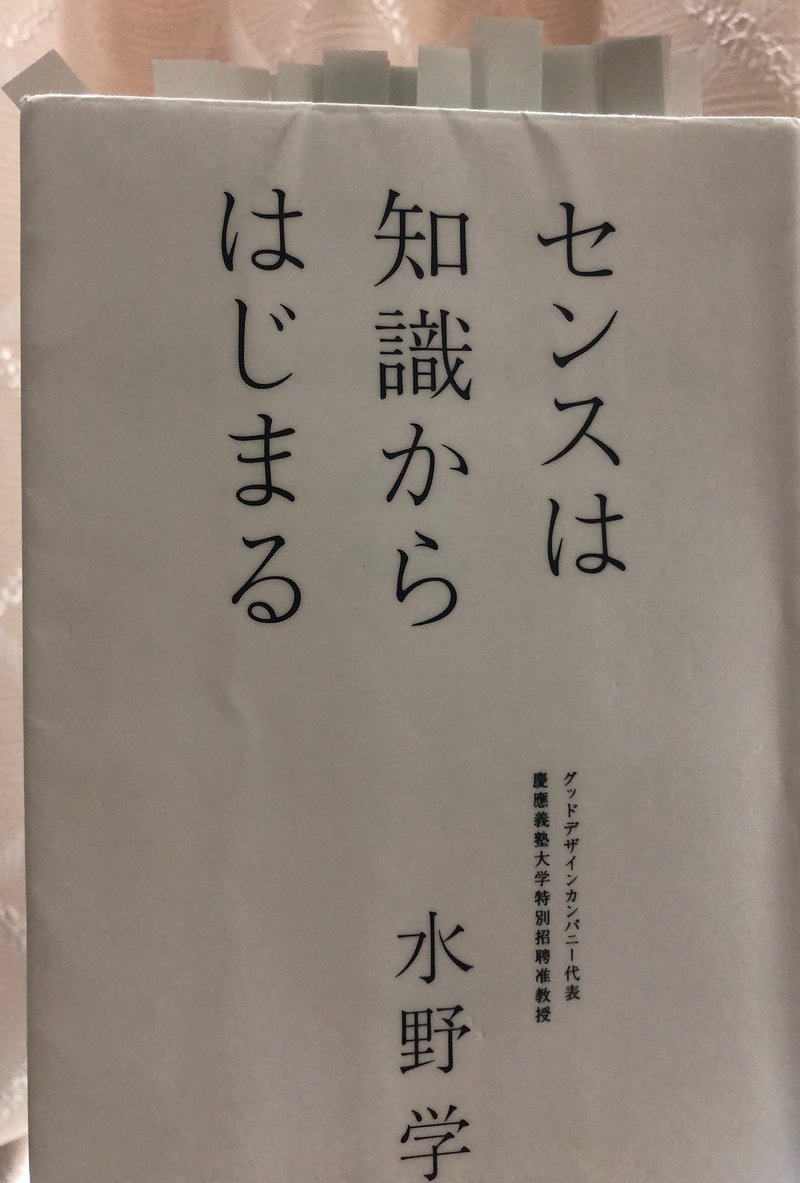 センスは
知識から
はじまる
グッドデザインカンパニー代表
慶應義塾大学特別招聘准教授
水野学